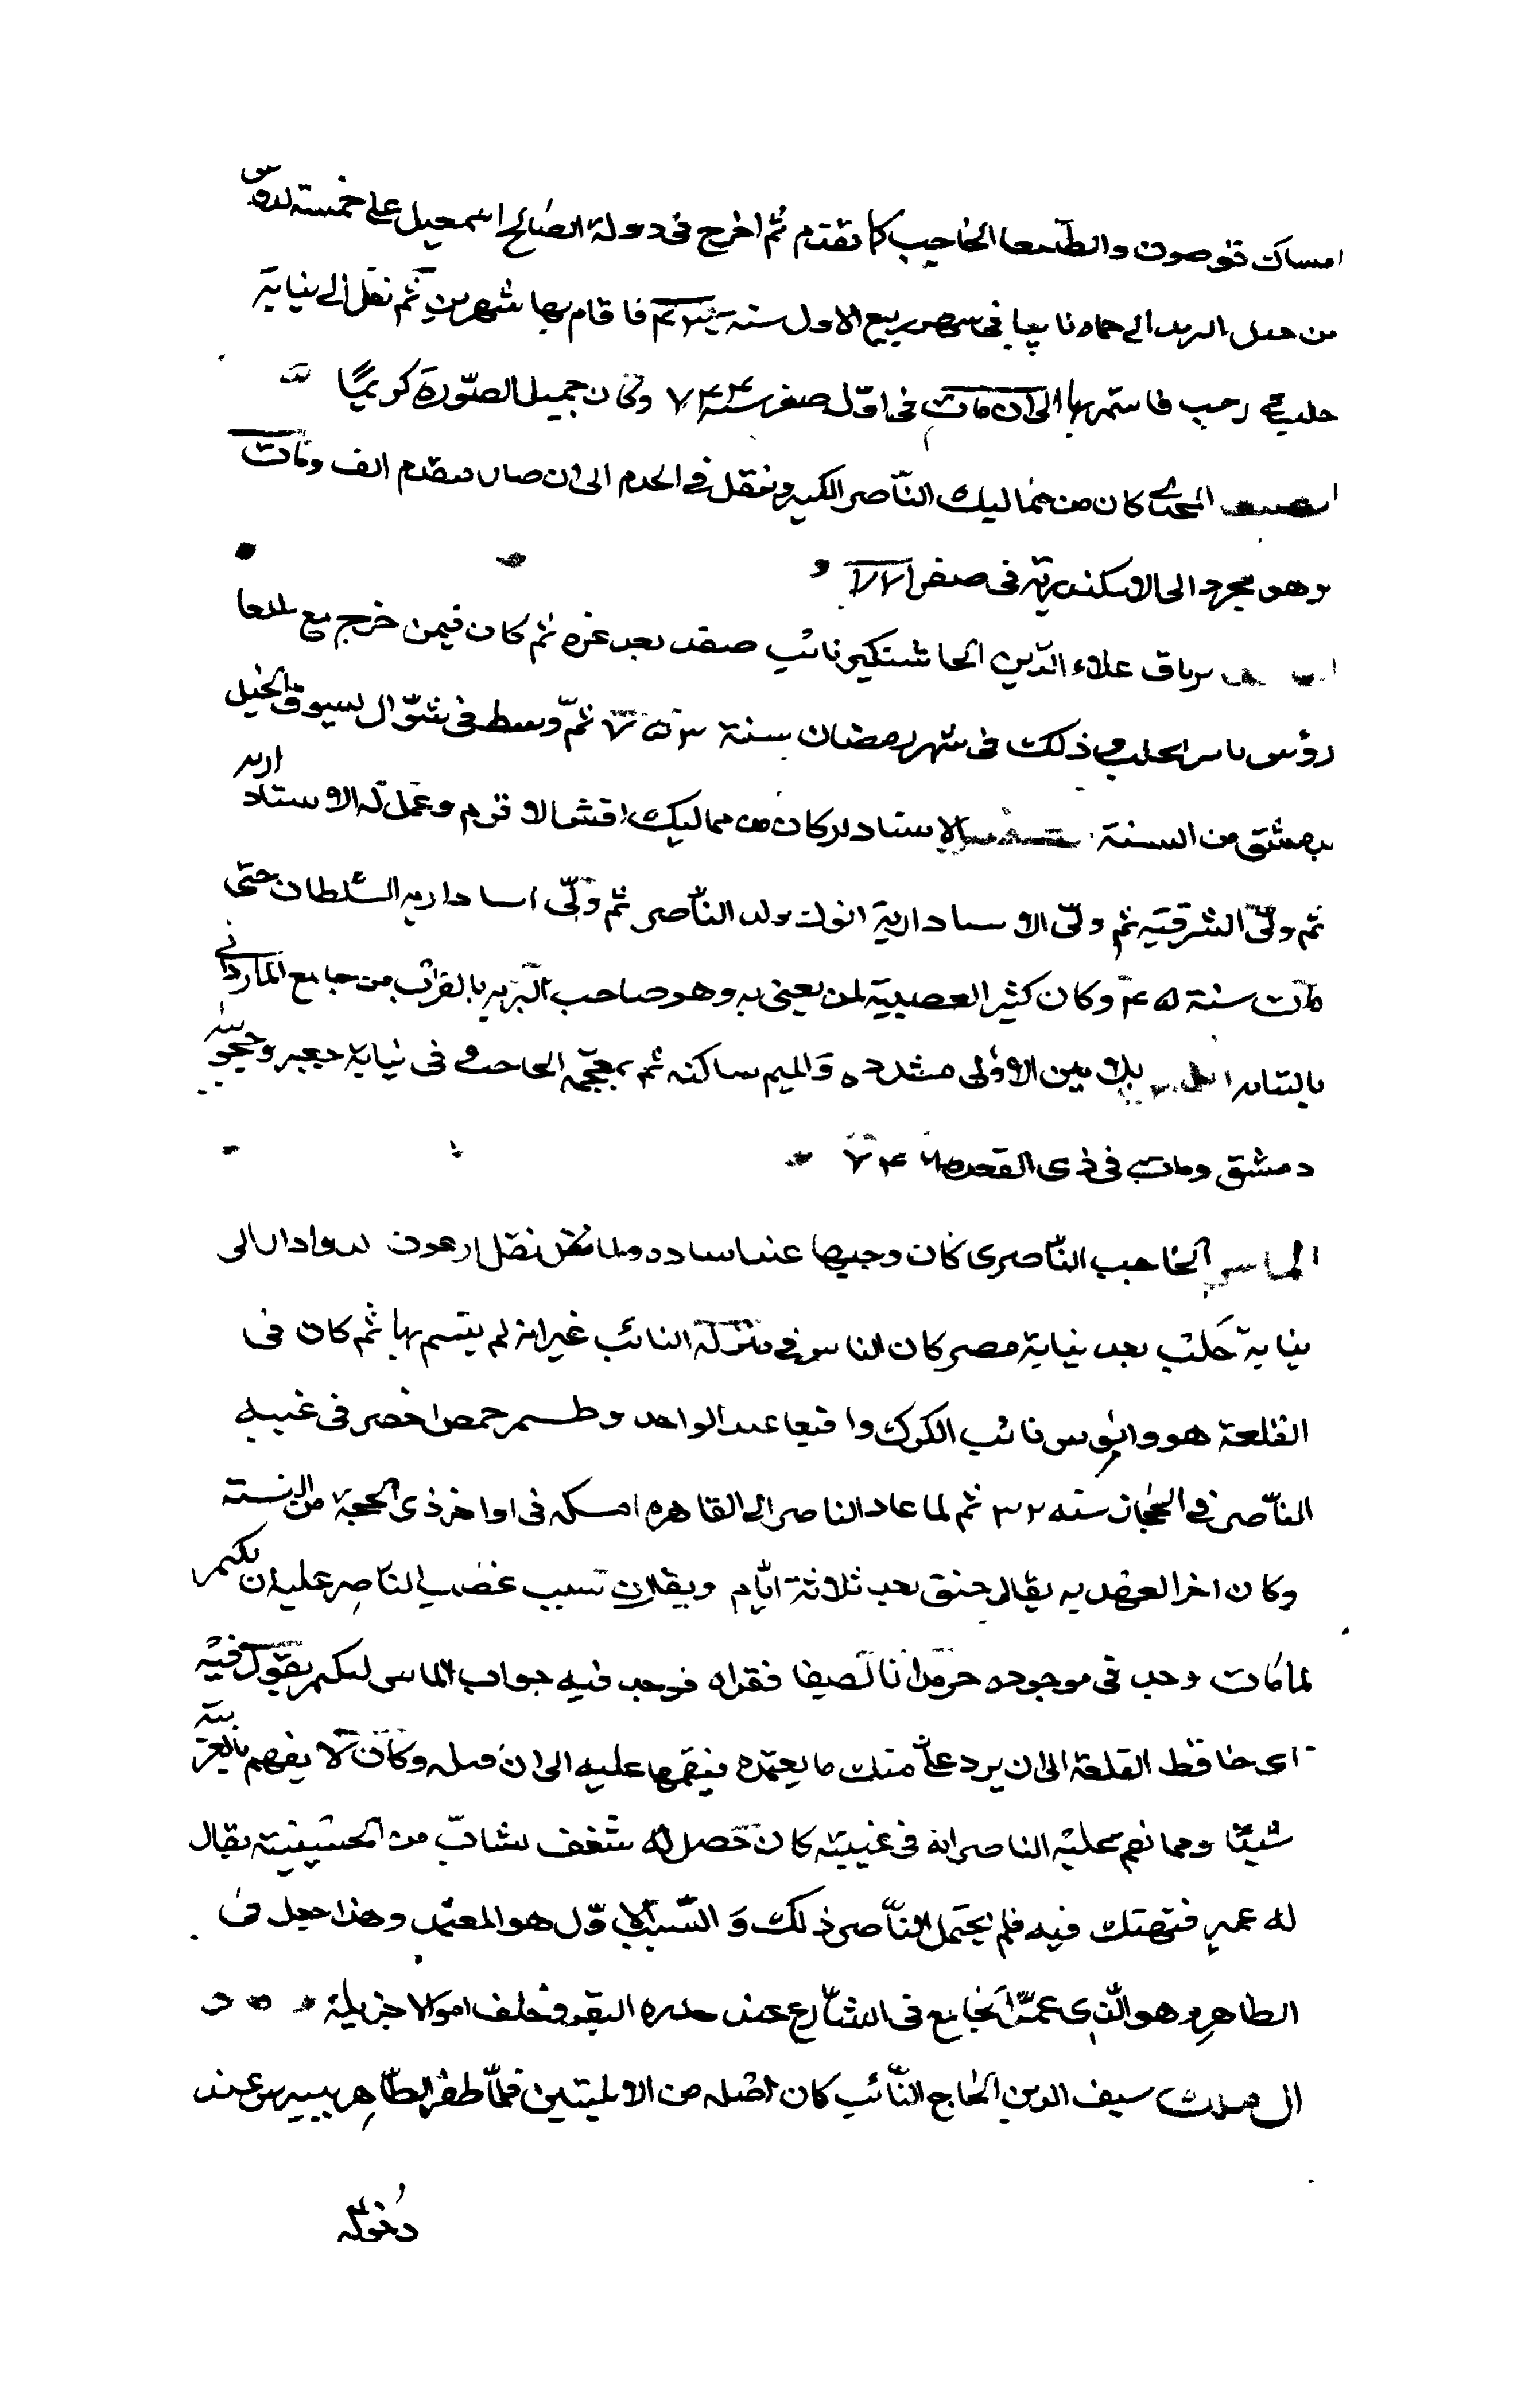 امساك قوصون والطنبغا الحاجب كما تقدم ثم اخرج فى دولة الصالح اسمعيل على خمسة ارؤس
من خيل البريد الى حماه نايبا فى شهر ربيع الاول سنة فاقام بها شهرين ثم نقل الى نيابة
حلب فى رجب فاستمر بها الى ان مات فى اول صفر سنة ٧٤٤ وكان جميل الصورة كريما
المحمدى كان من مماليك الناصر الكبير وتنقل فى الخدم الى ان صار مقدم الف ومات
وهو مجرد الى الاسكندرية فى صفر
برناق علاء الدين الجاشنكير نائب صفد بعد غزه ثم كان فيمن خرج مع بلبغا
رؤس ياسر الحلب وذلك فى شهر رمضان سنة ٧٥٣ ثم وسط فى شوال بسوق الخيل
بدمشق من السنة الاستادار كان من مماليك اقش الافرم وعمل له الاستادارية
ثم ولى الشرقية ثم ولى الاستادارية انوك ولد الناصر ثم ولى استادارية السلطان حتى
مات سنة ٤٥ وكان كثير العصبية لمن يعنى به وهو صاحب التربة بالقرب من جامع الماردانى
بالتبانة بلامين الاولى مشددة والميم ساكنه ثم بمعجمة الحاجب ولى نيابة جعبر وحجوبية
دمشق ومات فى ذى القعده ٧٤٦
الماس الحاجب الناصرى كان وجيها عند استاذه ولما نقل ارغون الدوادار الى
نيابة حلب بعد نيابة مصر كان الناس فى منزلة النائب غير انه لم يتسم بها ثم كان فى
القلعة هو واقوس نائب الكرك واقبغا عبد الواحد وطشتمر حمص اخضر فى غيبة
الناصر فى الحجاز سنة ٣٢ ثم لما عاد الناصر الى القاهره امسكه فى اواخر ذى الحجة من السنة
وكان اخر العهد به يقال خنق بعد ثلاثة ايام ويقال ان سبب غضب الناصر عليه ان بكتمر
لما مات وجد فى موجوده حرمدانا لصيفا فقراه فوجد فيه جواب الماس لبكتمر يقول فيه
اى حافظ القلعة الى ان يرد على منك ما يعتمده فنقمها عليه الى ان قتله وكان لا يفهم بالعربية
شيئا ومما نقم عليه الناصر انه فى غيبته كان حصل له شغف بشاب من الحسينية يقال
له عمير فتهتك فيه فلم يحتمل الناصر ذلك والسبب الاول هو المعتمد وهذا جعل فى
الظاهر وهو الذى عمر الجامع فى الشارع عند حدره البقر وخلف اموالا جزيلة
ال ملك سيف الدين الحاج النائب كان اصله من الابلستين فلما ظفر الظاهر بيبرس عند
دخوله